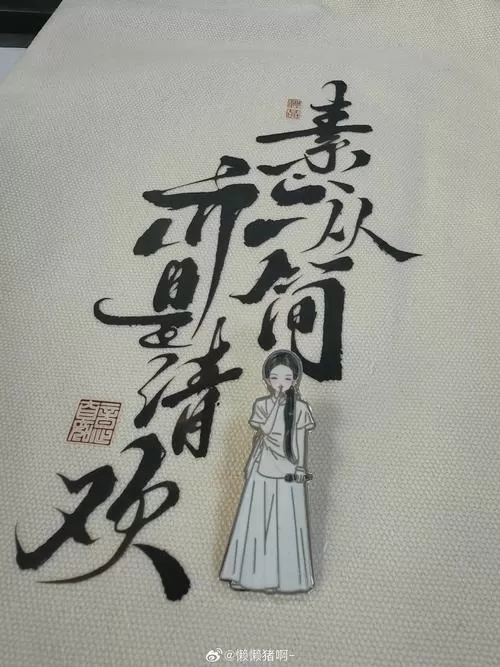 素心从简
亦是清欢
@懒懒猪啊-